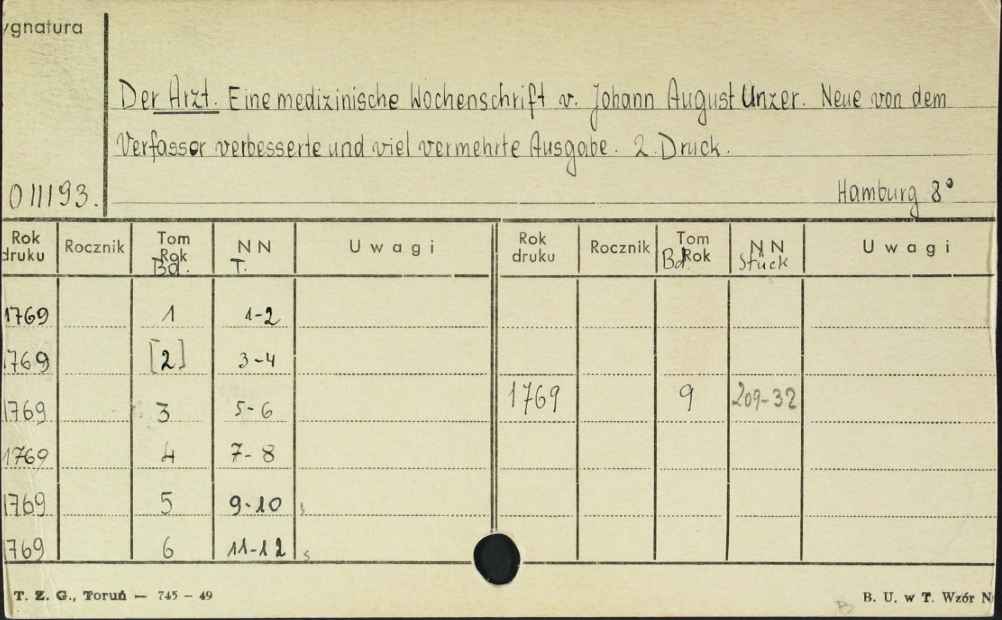 ygnatura
Der Arzt. Eine medizinische Wochenschrift v. Johann August Unzer. Neue von dem
Verfasser verbesserte und viel vermehrte Ausgabe. 2. Druck.
011193.
Hamburg 8°
Rok druku Rocznik Tom Rok Bd. NN T. Uwagi Rok druku Rocznik Tom Rok Bd. NN Stück Uwagi
1769 1 1-2
1769 [2] 3-4
1769 3 5-6
1769 9 209-32
1769 4 7-8
1769 5 9-10
1769 6 11-12
T. Z. G., Toruń — 745 – 49
B. U. w T. Wzór N
B